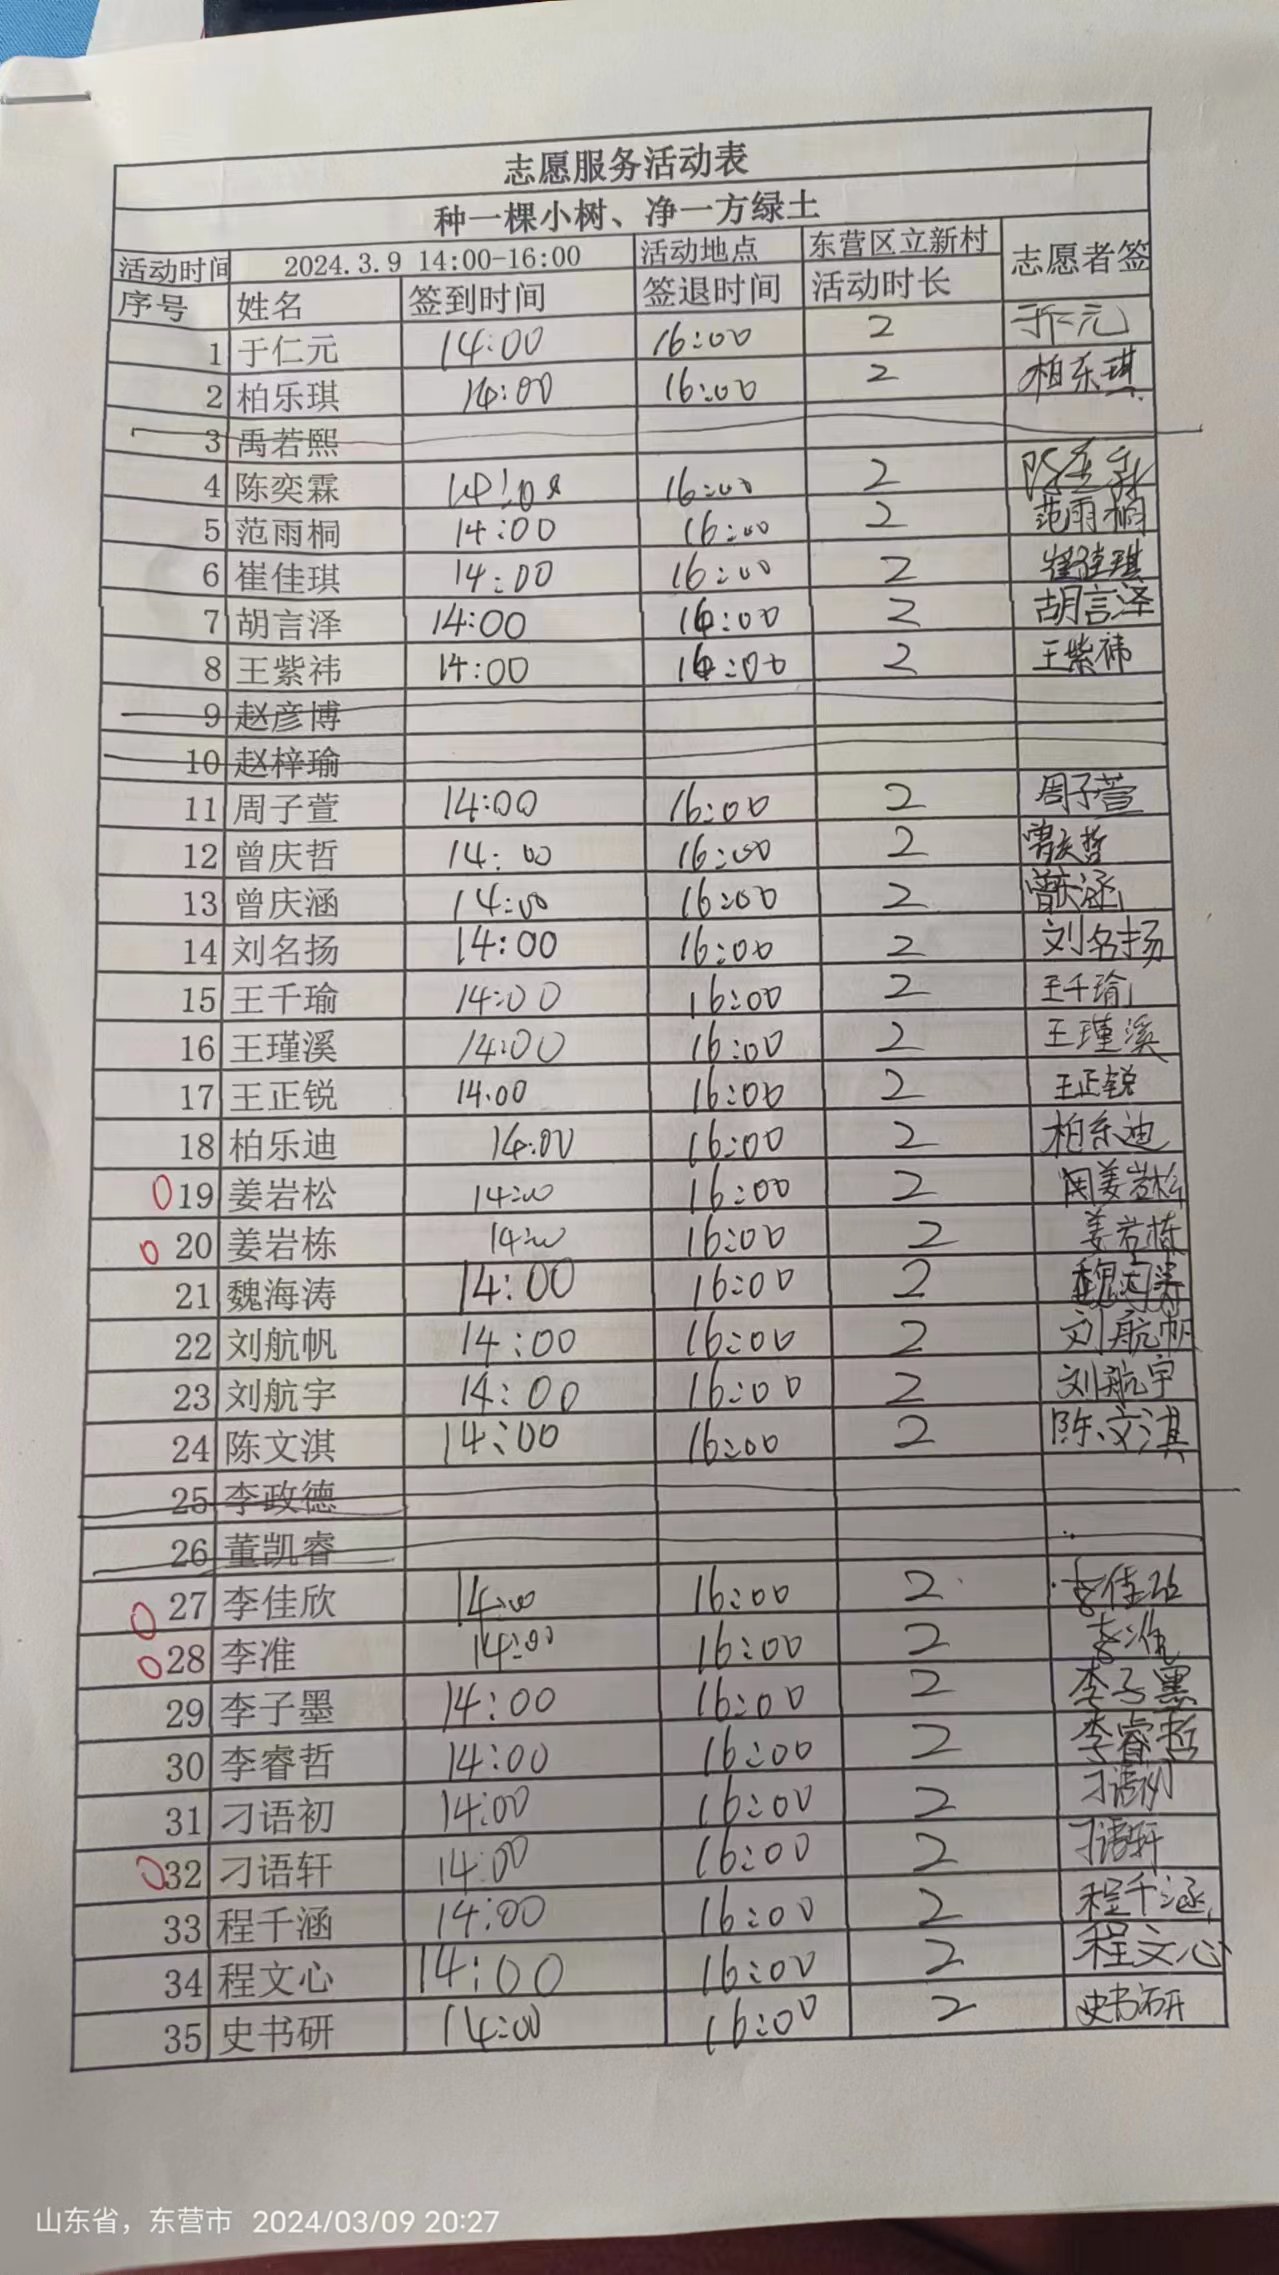 志愿服务活动表
种一棵小树、净一方绿土
活动时间 2024.3.9 14:00-16:00 活动地点 东营区立新村 志愿者签
序号 姓名 签到时间 签退时间 活动时长
1 于仁元 14:00 16:00 2 于仁元
2 柏乐琪 14:00 16:00 2 柏乐琪
3 禹若熙
4 陈奕霖 14:00 16:00 2
5 范雨桐 14:00 16:00 2 范雨桐
6 崔佳琪 14:00 16:00 2 崔佳琪
7 胡言泽 14:00 16:00 2 胡言泽
8 王紫祎 14:00 16:00 2 王紫祎
9 赵彦博
10 赵梓瑜
11 周子萱 14:00 16:00 2 周子萱
12 曾庆哲 14:00 16:00 2 曾庆哲
13 曾庆涵 14:00 16:00 2 曾庆涵
14 刘名扬 14:00 16:00 2 刘名扬
15 王千瑜 14:00 16:00 2 王千瑜
16 王瑾溪 14:00 16:00 2 王瑾溪
17 王正锐 14.00 16:00 2 王正锐
18 柏乐迪 14:00 16:00 2 柏乐迪
19 姜岩松 14:00 16:00 2 姜岩松
20 姜岩栋 14:00 16:00 2 姜岩栋
21 魏海涛 14:00 16:00 2 魏海涛
22 刘航帆 14:00 16:00 2 刘航帆
23 刘航宇 14:00 16:00 2 刘航宇
24 陈文淇 14:00 16:00 2 陈文淇
25 李政德
26 董凯睿
27 李佳欣 14:00 16:00 2 李佳欣
28 李准 14:00 16:00 2 李准
29 李子墨 14:00 16:00 2 李子墨
30 李睿哲 14:00 16:00 2 李睿哲
31 刁语初 14:00 16:00 2 刁语初
32 刁语轩 14:00 16:00 2 刁语轩
33 程千涵 14:00 16:00 2 程千涵
34 程文心 14:00 16:00 2 程文心
35 史书研 14:00 16:00 2 史书研
山东省，东营市 2024/03/09 20:27